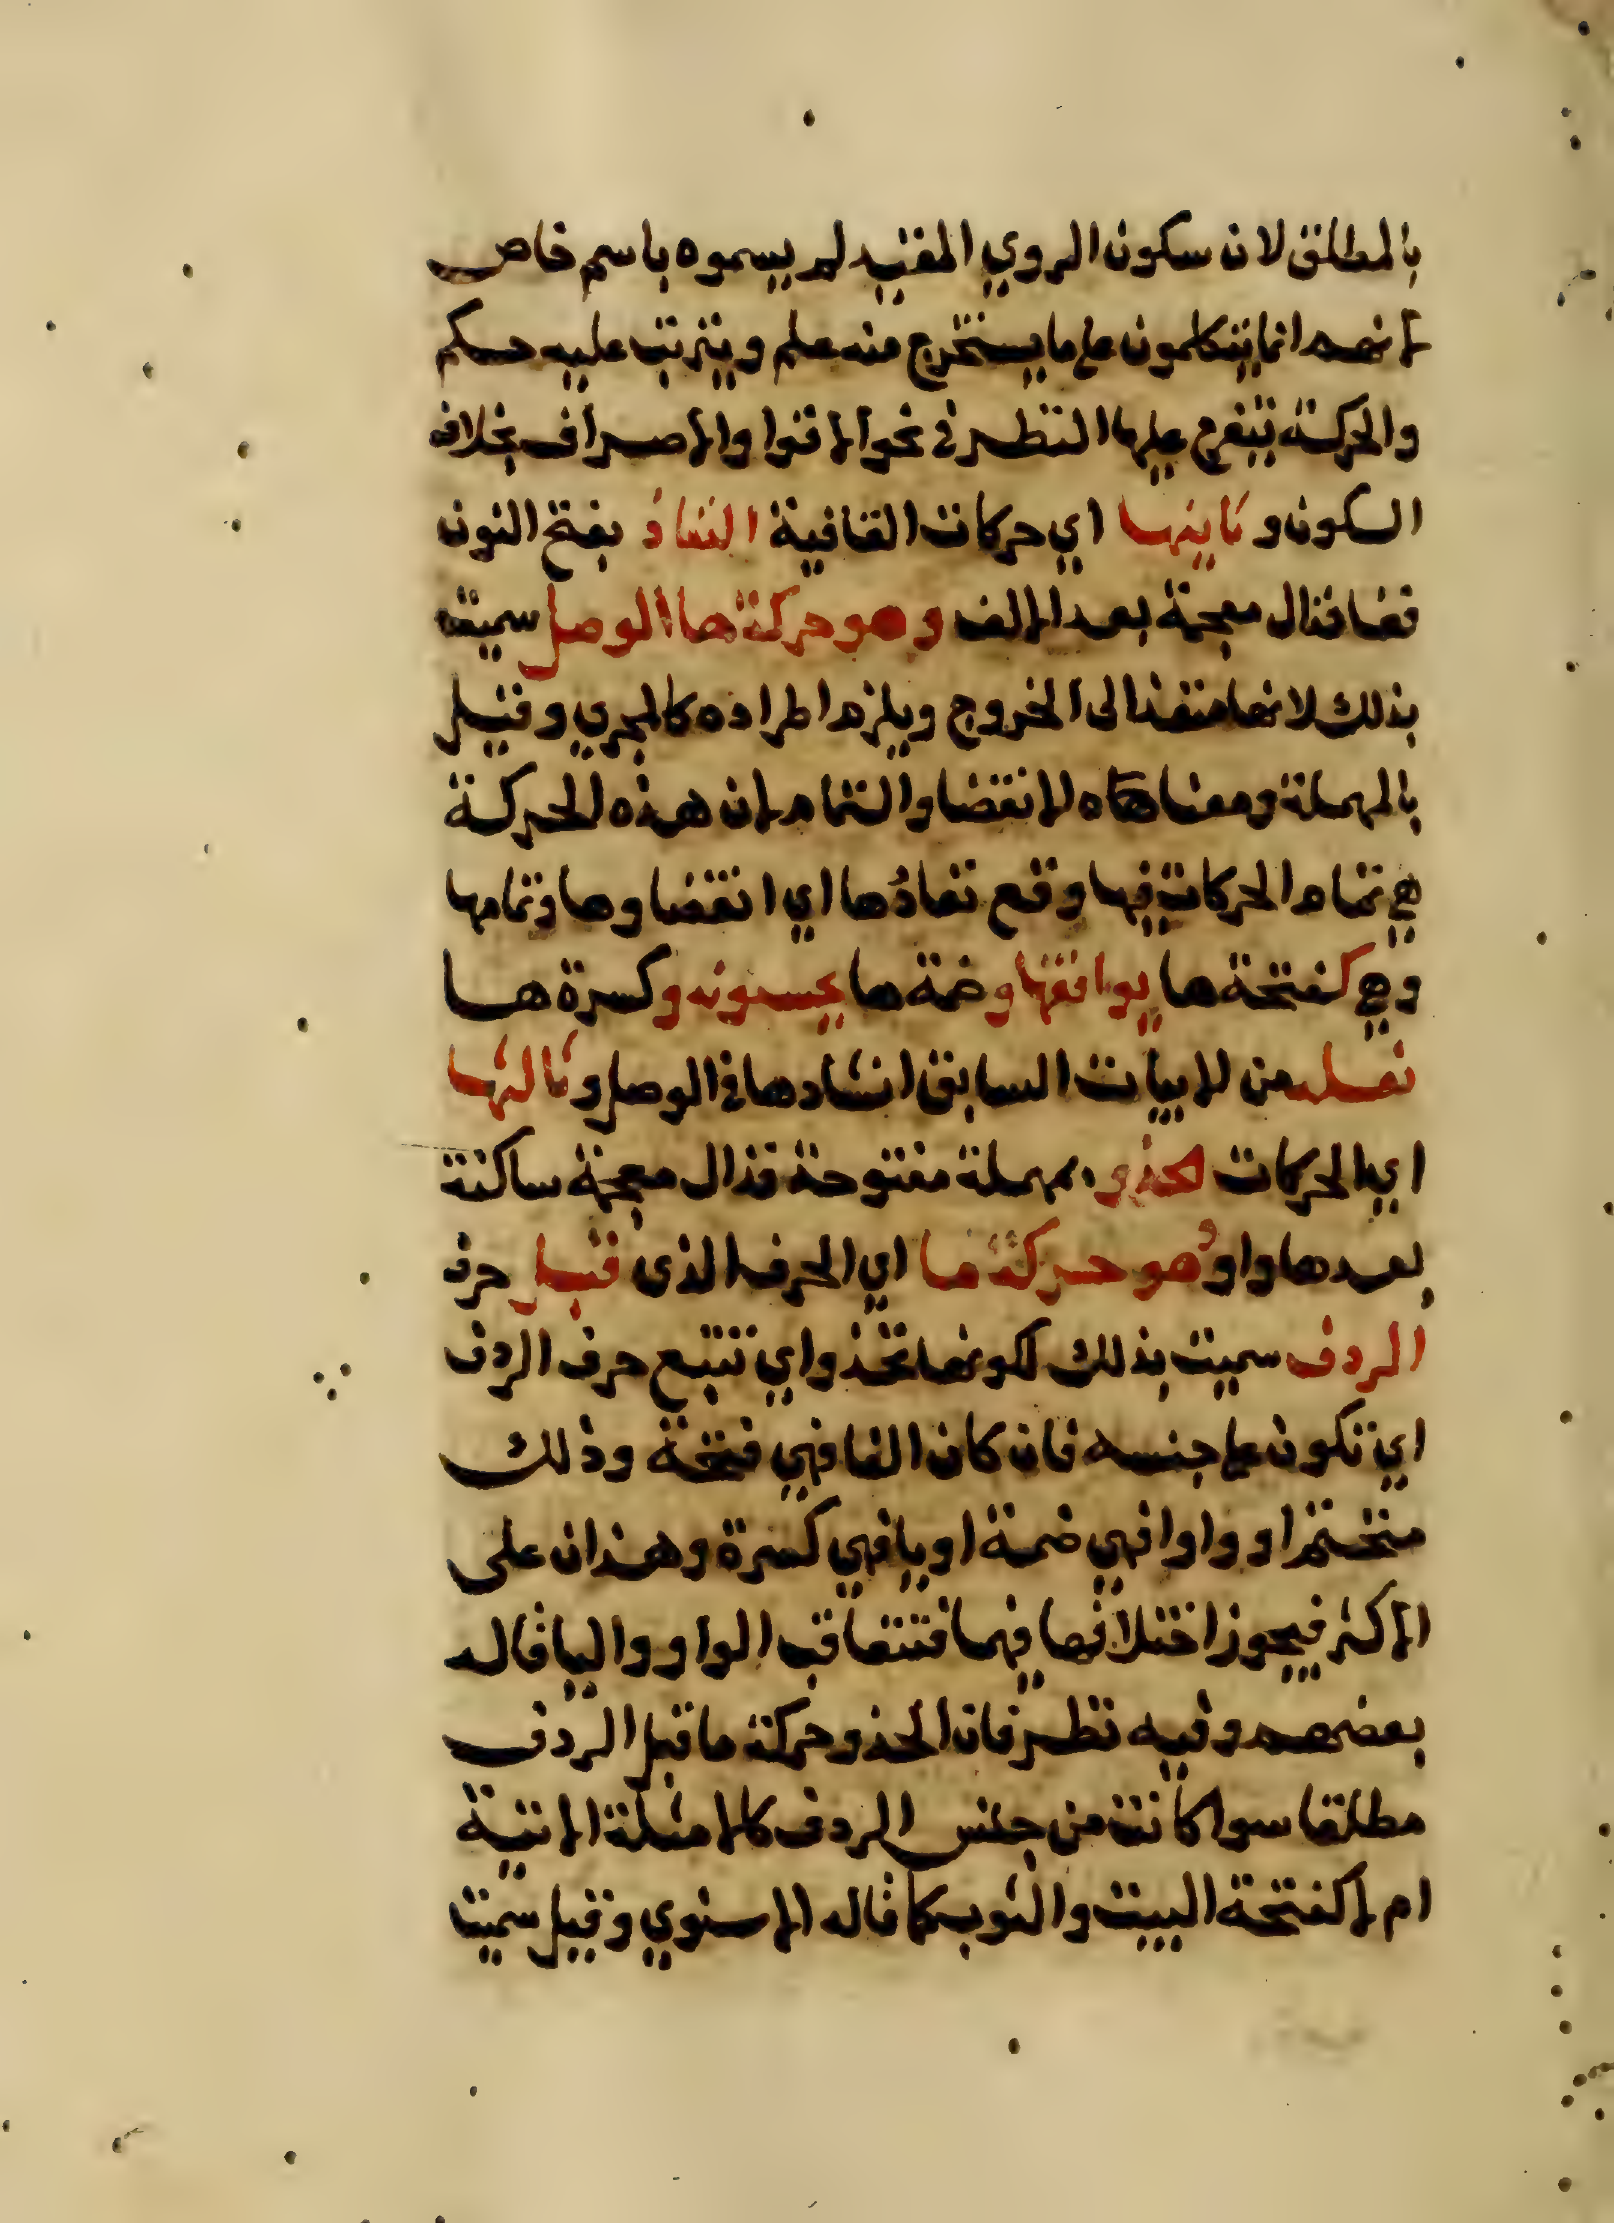 بالمطلق لان سكون الروي المقيد لم يسموه باسم خاص
لانهم انما يتكلمون على ما يستخرج منه علم ويترتب عليه حكم
والحركة يتفرع عليها النظر في نحو الاقوا والاصراف بخلاف
السكون و ثانيها اي حركات القافية النفاذ بفتح النون
ففا فذال معجمة بعد الالف وهو حركة ها الوصل سميت
بذلك لانها منفذ الى الخروج ويلزم اطراده كالمجري وقيل
بالمهملة ومعناه الانقضا والتمام لان هذه الحركة
هي تمام الحركات فيها وقع نفادها اي انقضاوها وتمامها
وهي كفتحة ها يوافقها وضمة ها يحسبونه وكسرة ها
نعله من الابيات السابق انشادها في الوصل و ثالثها
اي الحركات الحذو بمهملة مفتوحة فذال معجمة ساكنة
بعدها واو وهو حركة ما اي الحرف الذي قبل حرف
الردف سميت بذلك لكونها تحذو اي تتبع حرف الردف
اي تكون على جنسه فان كان الفا فهي فتحة وذلك
متحتم او واوا فهي ضمة او يا فهي كسرة وهذان على
الاكثر فيجوز اختلافها فيهما فتتعاقب الواو واليا قاله
بعضهم وفيه نظر فان الحذو حركة ما قبل الردف
مطلقا سوا كانت من جنس الردف كالامثلة الاتية
ام لا كفتحة البيت والثوب كما قاله الاسنوي وقيل سميت